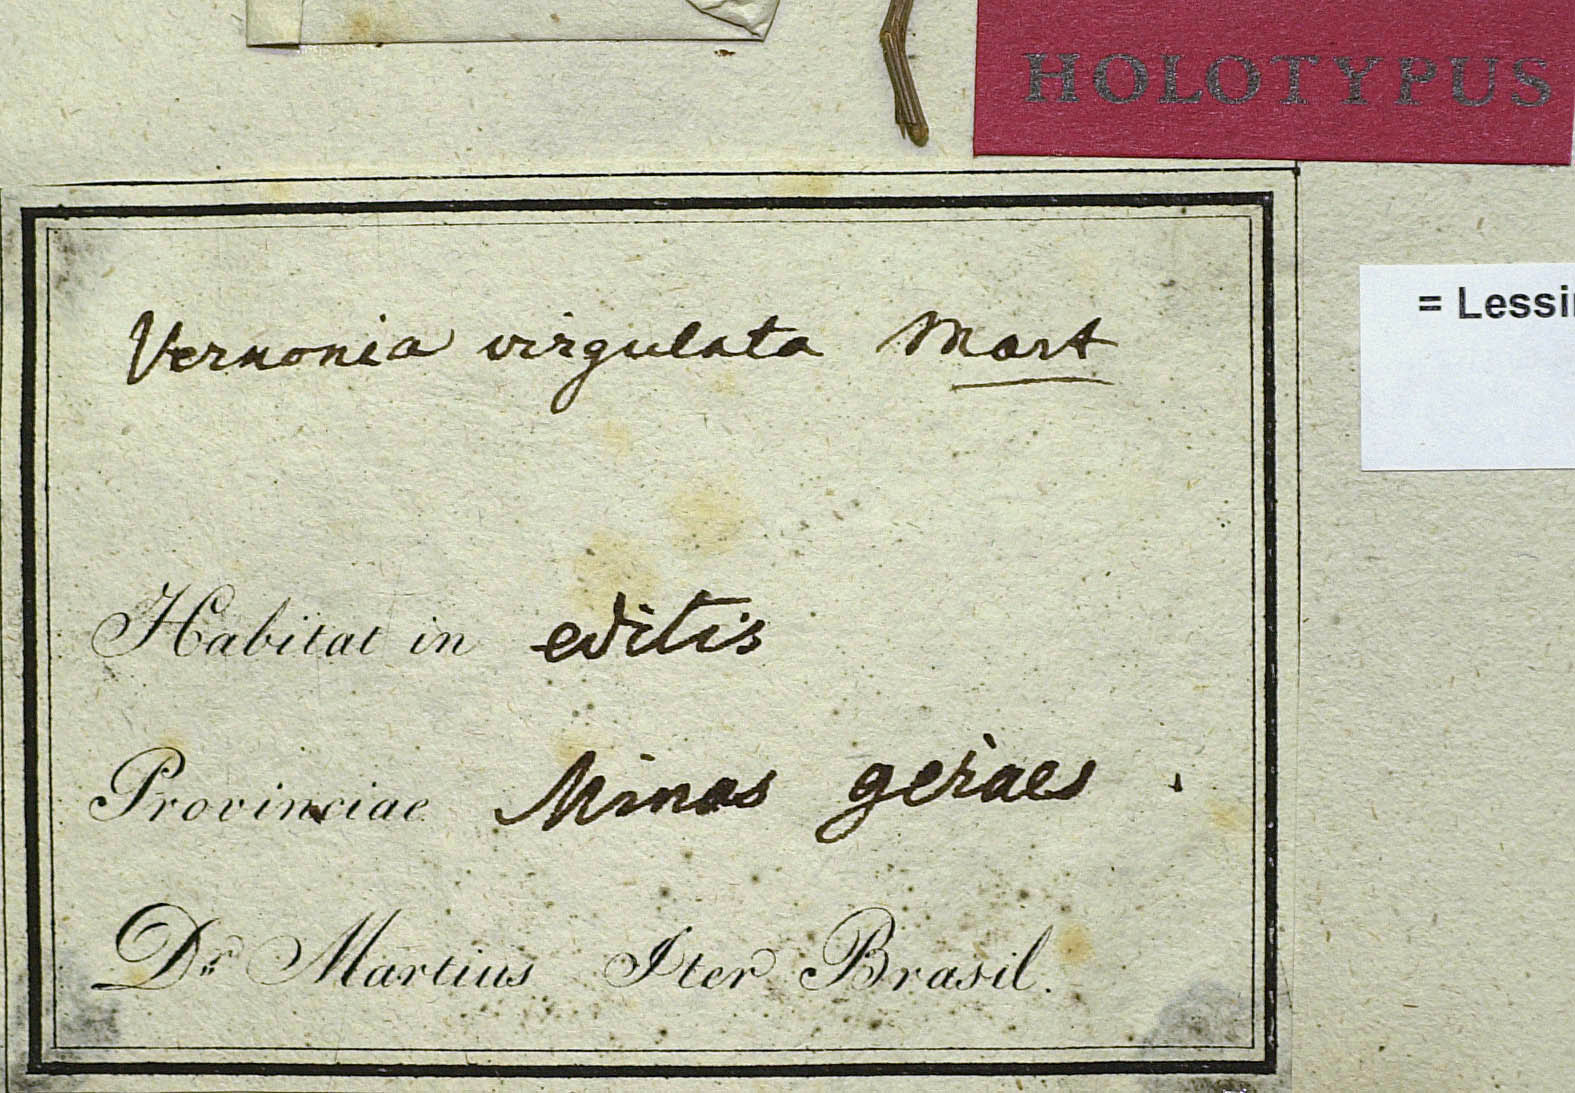 HOLOTYPUS
= Lessin
Vernonia virgulata Mart
Habitat in editis
Provinciae Minas geraes.
Dr Martius Iter Brasil.